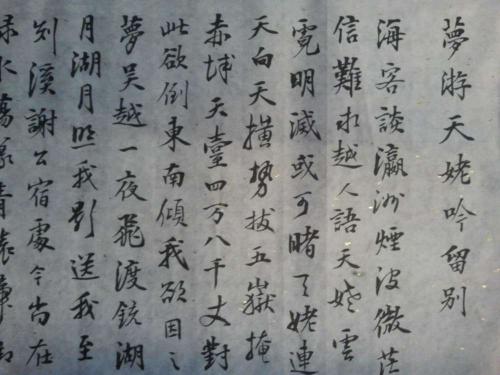 夢游天姥吟留別
海客談瀛洲煙波微茫
信難求越人語天姥雲
霓明滅或可睹天姥連
天向天橫勢拔五嶽掩
赤城天臺四万八千丈對
此欲倒東南傾我欲因之
夢吴越一夜飛渡鏡湖
月湖月照我影送我至
剡溪謝公宿處今尚在
淥水蕩漾清猿啼